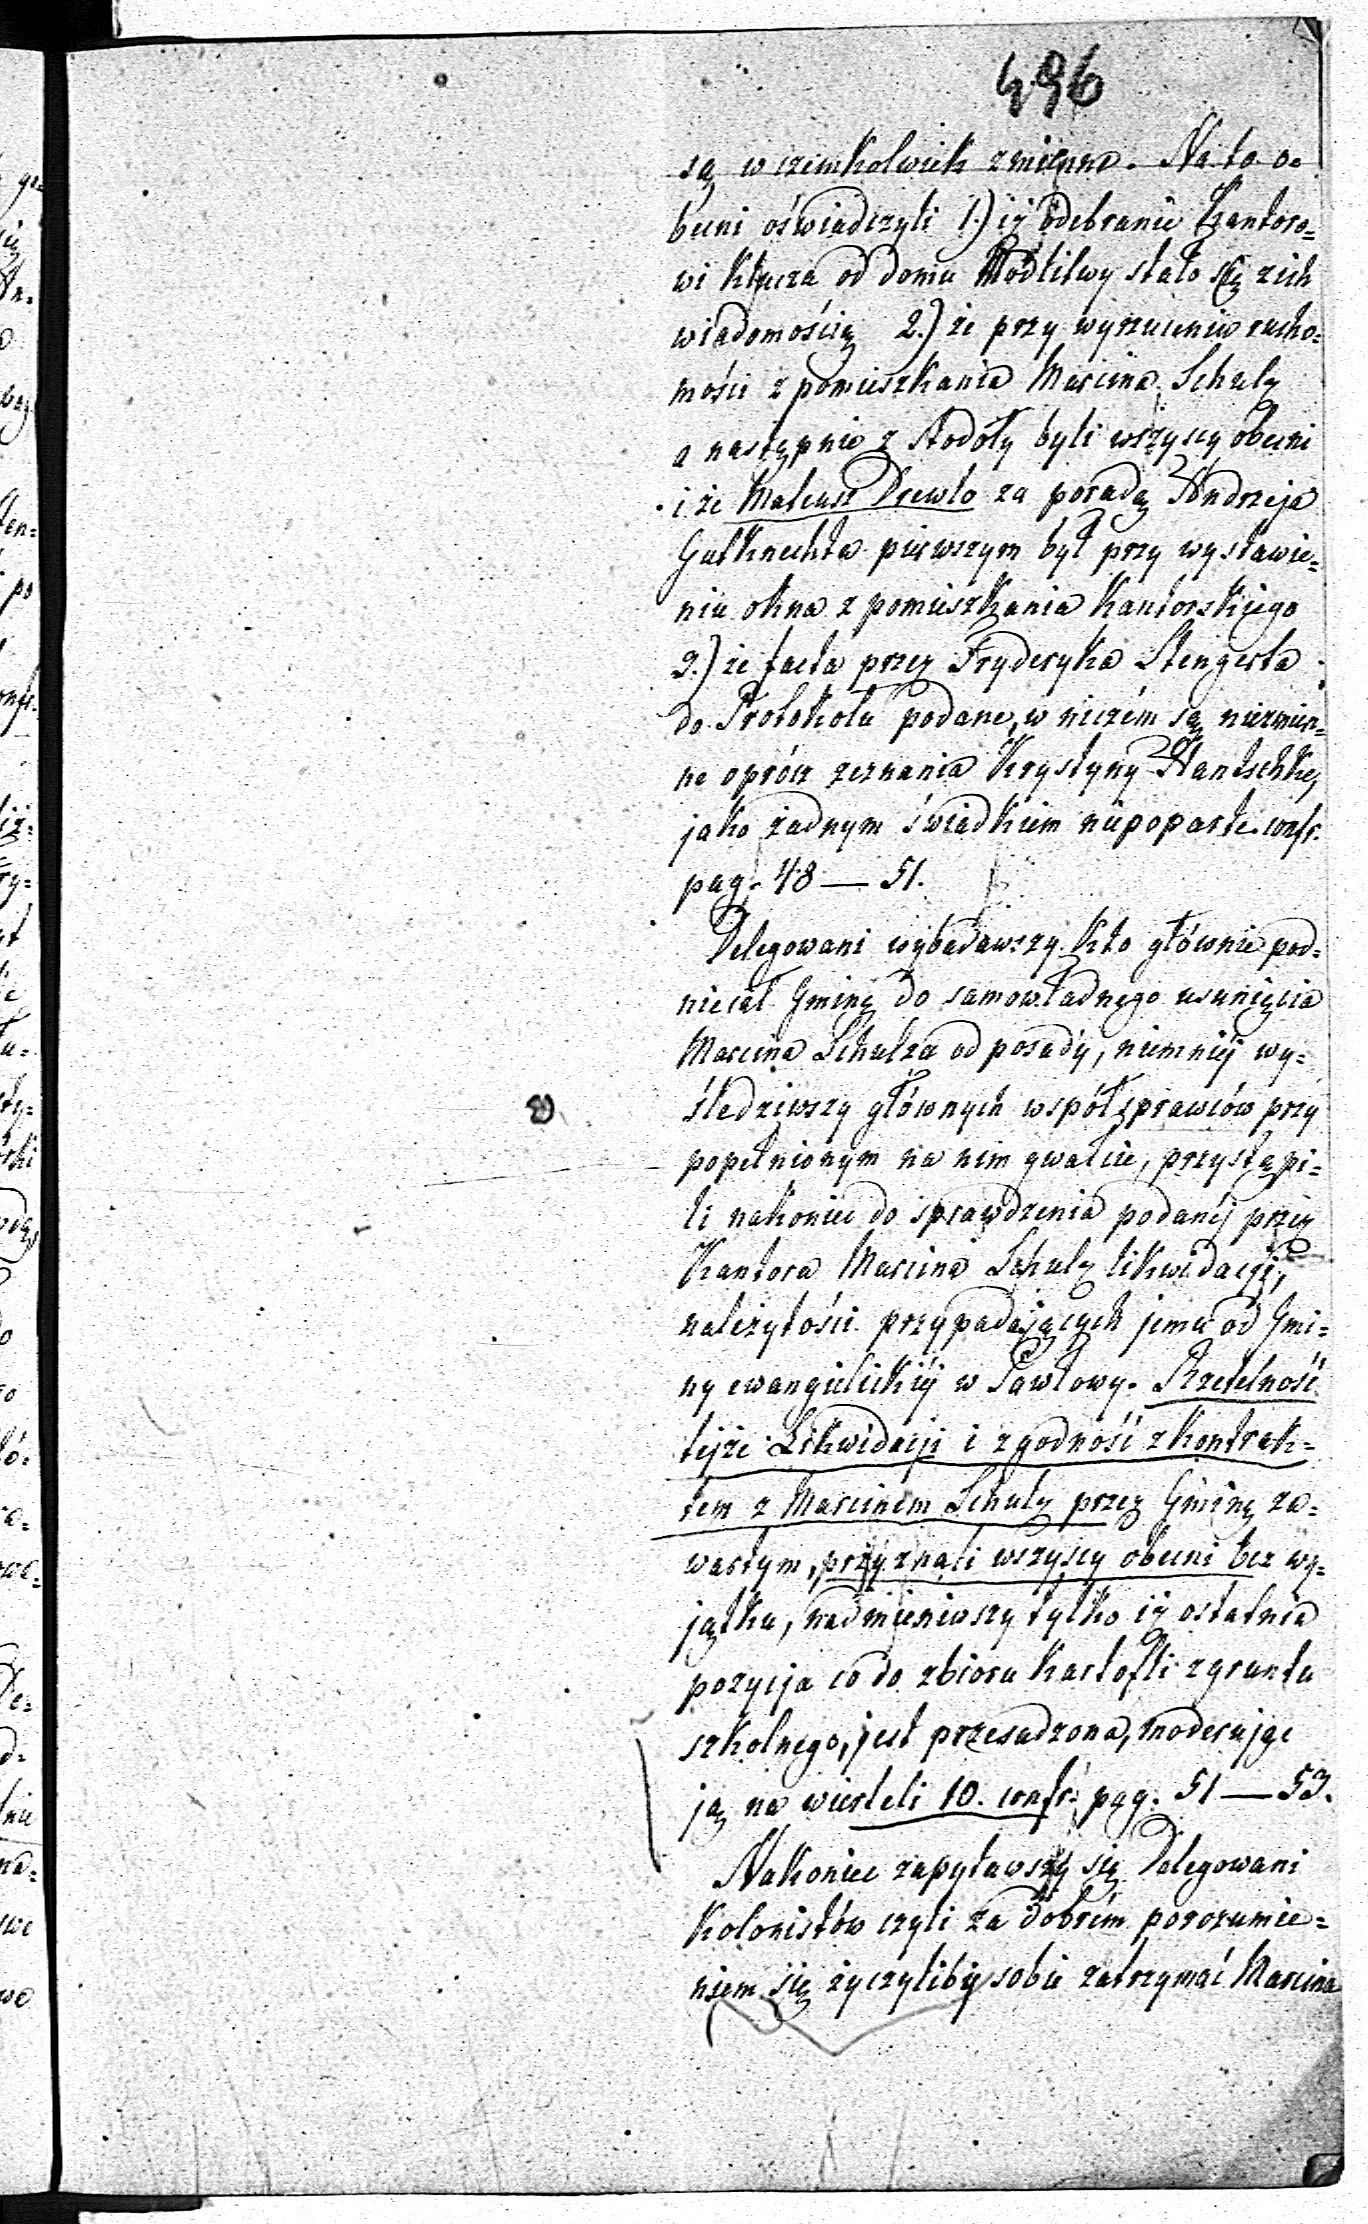 496
są w czemkolwiek zmienne. Na to o=
becni oświadczyli 1.) iż odebranie Kantoro=
wi klucza od domu Modlitwy stało się z ich
wiadomością 2.) że przy wyrzuceniu rucho=
mości z pomieszkania Marcina Schulz
a następnie z stodoły byli wszyscy obecni
i że Mateusz Drewlo za poradą Andrzeja
Gutknechta pierwszym był przy wystawie=
niu okna z pomieszkania Kantorskiego
3.) że facta przez Fryderyka Stengerta
do Protokołu podane, w niczém są niezmien=
ne oprócz zeznania Krystyny Hantschke,
jako żadnym świadkiem niepoparte. confr.
pag. 48 — 51.
Delegowani wybadawszy kto głównie pod=
niecał Gminę do samowładnego usunięcia
Marcina Schulza od posady, niemniéj wy=
śledziwszy głównych współsprawców przy
popełnionym na nim gwałcie, przystąpi=
li nakoniec do sprawdzenia podanéj przez
Kantora Marcina Schulz likwidacyi,
należytości przypadających jemu od Gmi=
ny ewangielickiéj w Pawłowy. Rzetelność
tejże Likwidacji i zgodność z kontrak=
tem z Marcinem Schulz przez Gminę za=
wartym, przyznali wszyscy obecni bez wy=
jątku, nadmieniwszy tylko iż ostatnia
pozycja co do zbioru kartofli z gruntu
szkolnego, jest przesadzona, moderując
ją na wierteli 10. confr. pag. 51 — 53.
Nakoniec zapytawszy się Delegowani
Kolonistów czyli za dobrém porozumie=
niem się życzyliby sobie zatrzymać Marcina